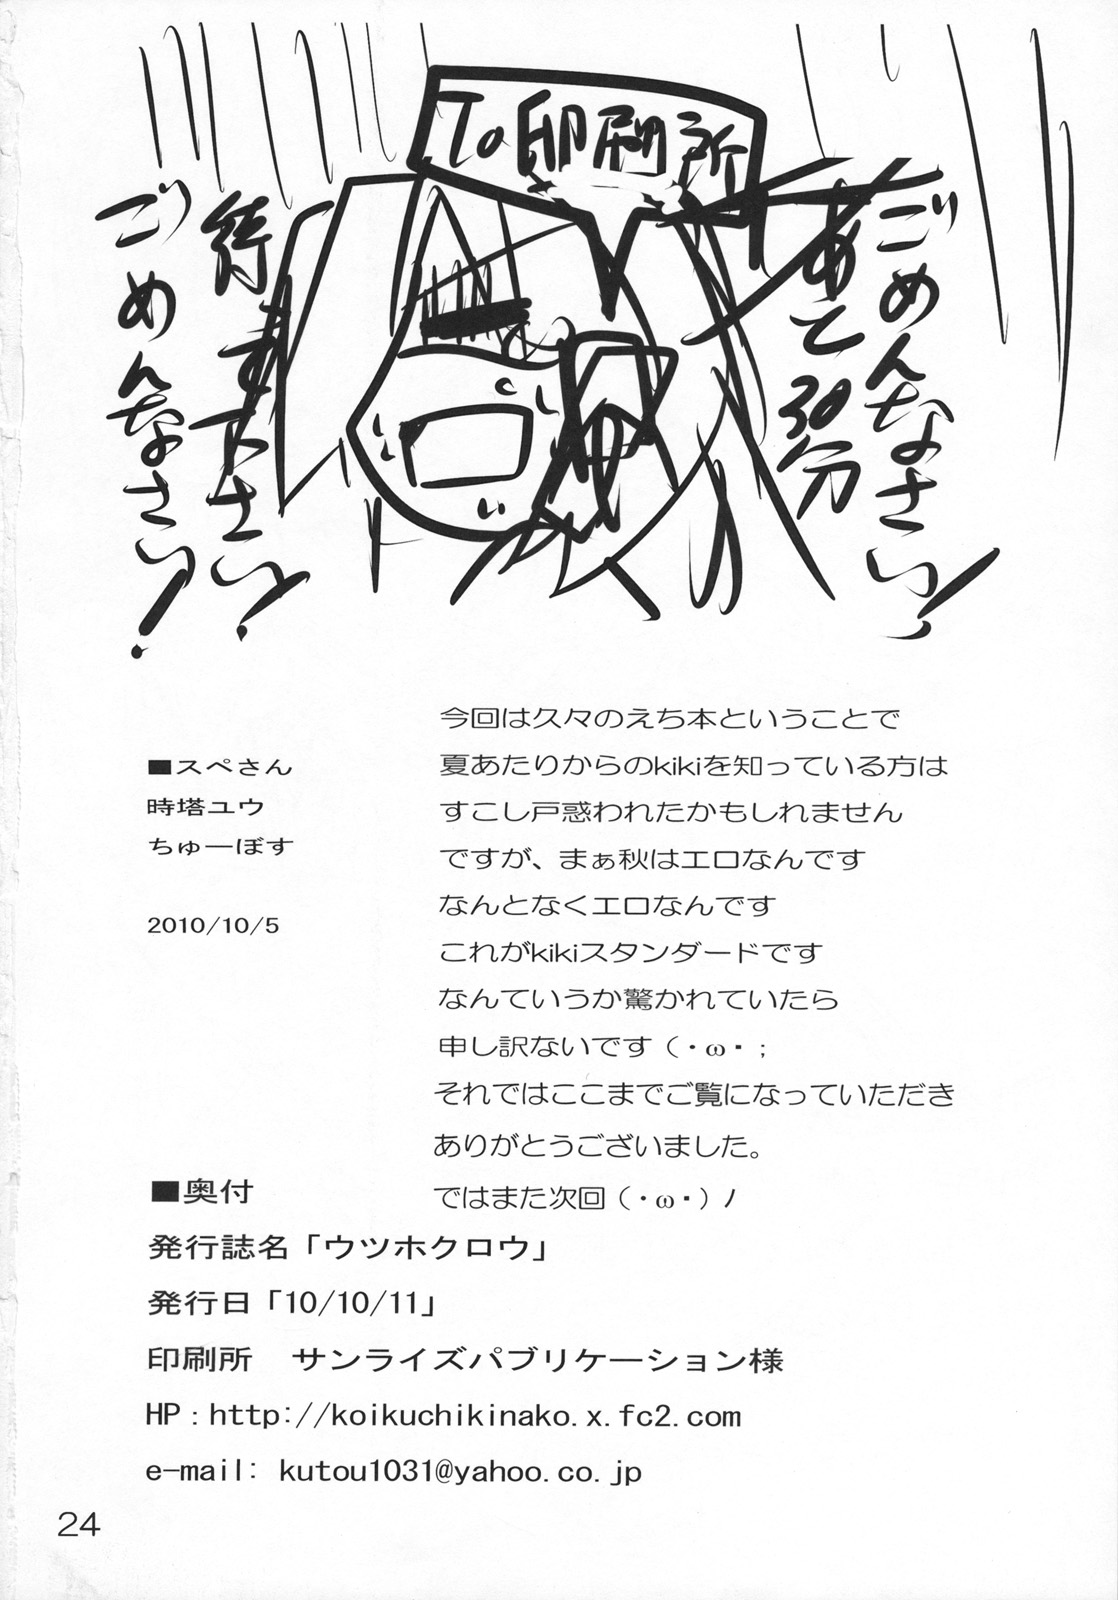 To 印刷所
ごめんなさい!
あと30分
待って下さい!
ごめんなさい!
今回は久々のえち本ということで
夏あたりからのkikiを知っている方は
すこし戸惑われたかもしれません
ですが、まぁ秋はエロなんです
なんとなくエロなんです
これがkikiスタンダードです
なんていうか驚かれていたら
申し訳ないです（・ω・;
それではここまでご覧になっていただき
ありがとうございました。
ではまた次回（・ω・）ﾉ
■スペさん
時塔ユウ
ちゅーぼす
2010/10/5
■奥付
発行誌名「ウツホクロウ」
発行日「10/10/11」
印刷所　サンライズパブリケーション様
HP：http://koikuchikinako.x.fc2.com
e-mail: kutou1031@yahoo.co.jp
24